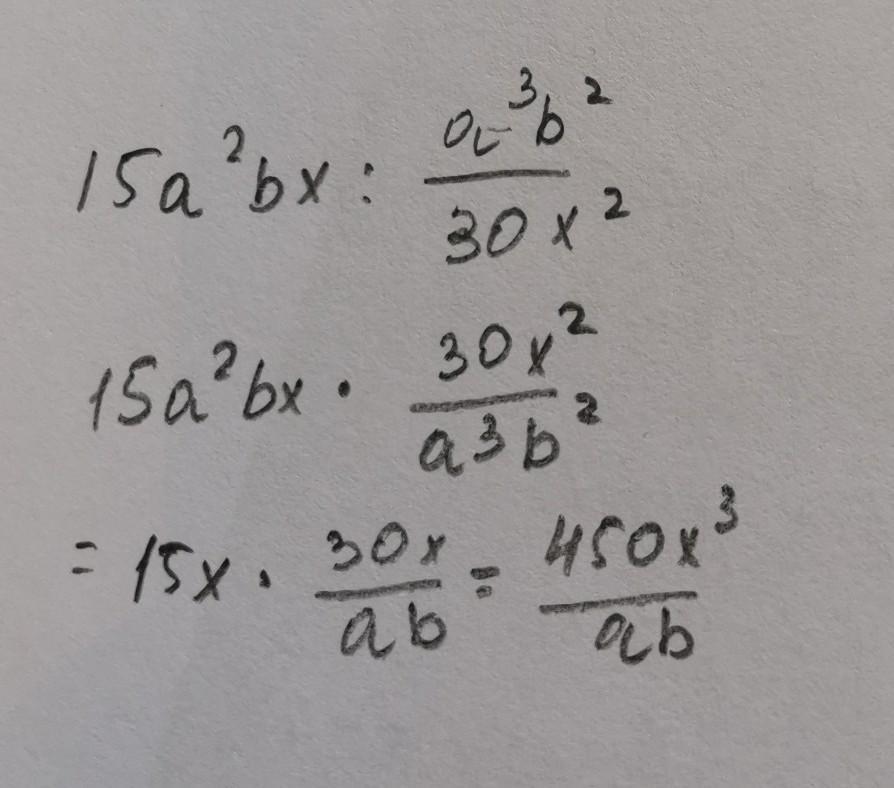 15a²bx : a³b²/30x²
15a²bx · 30x²/a³b²
= 15x · 30x/ab = 450x³/ab